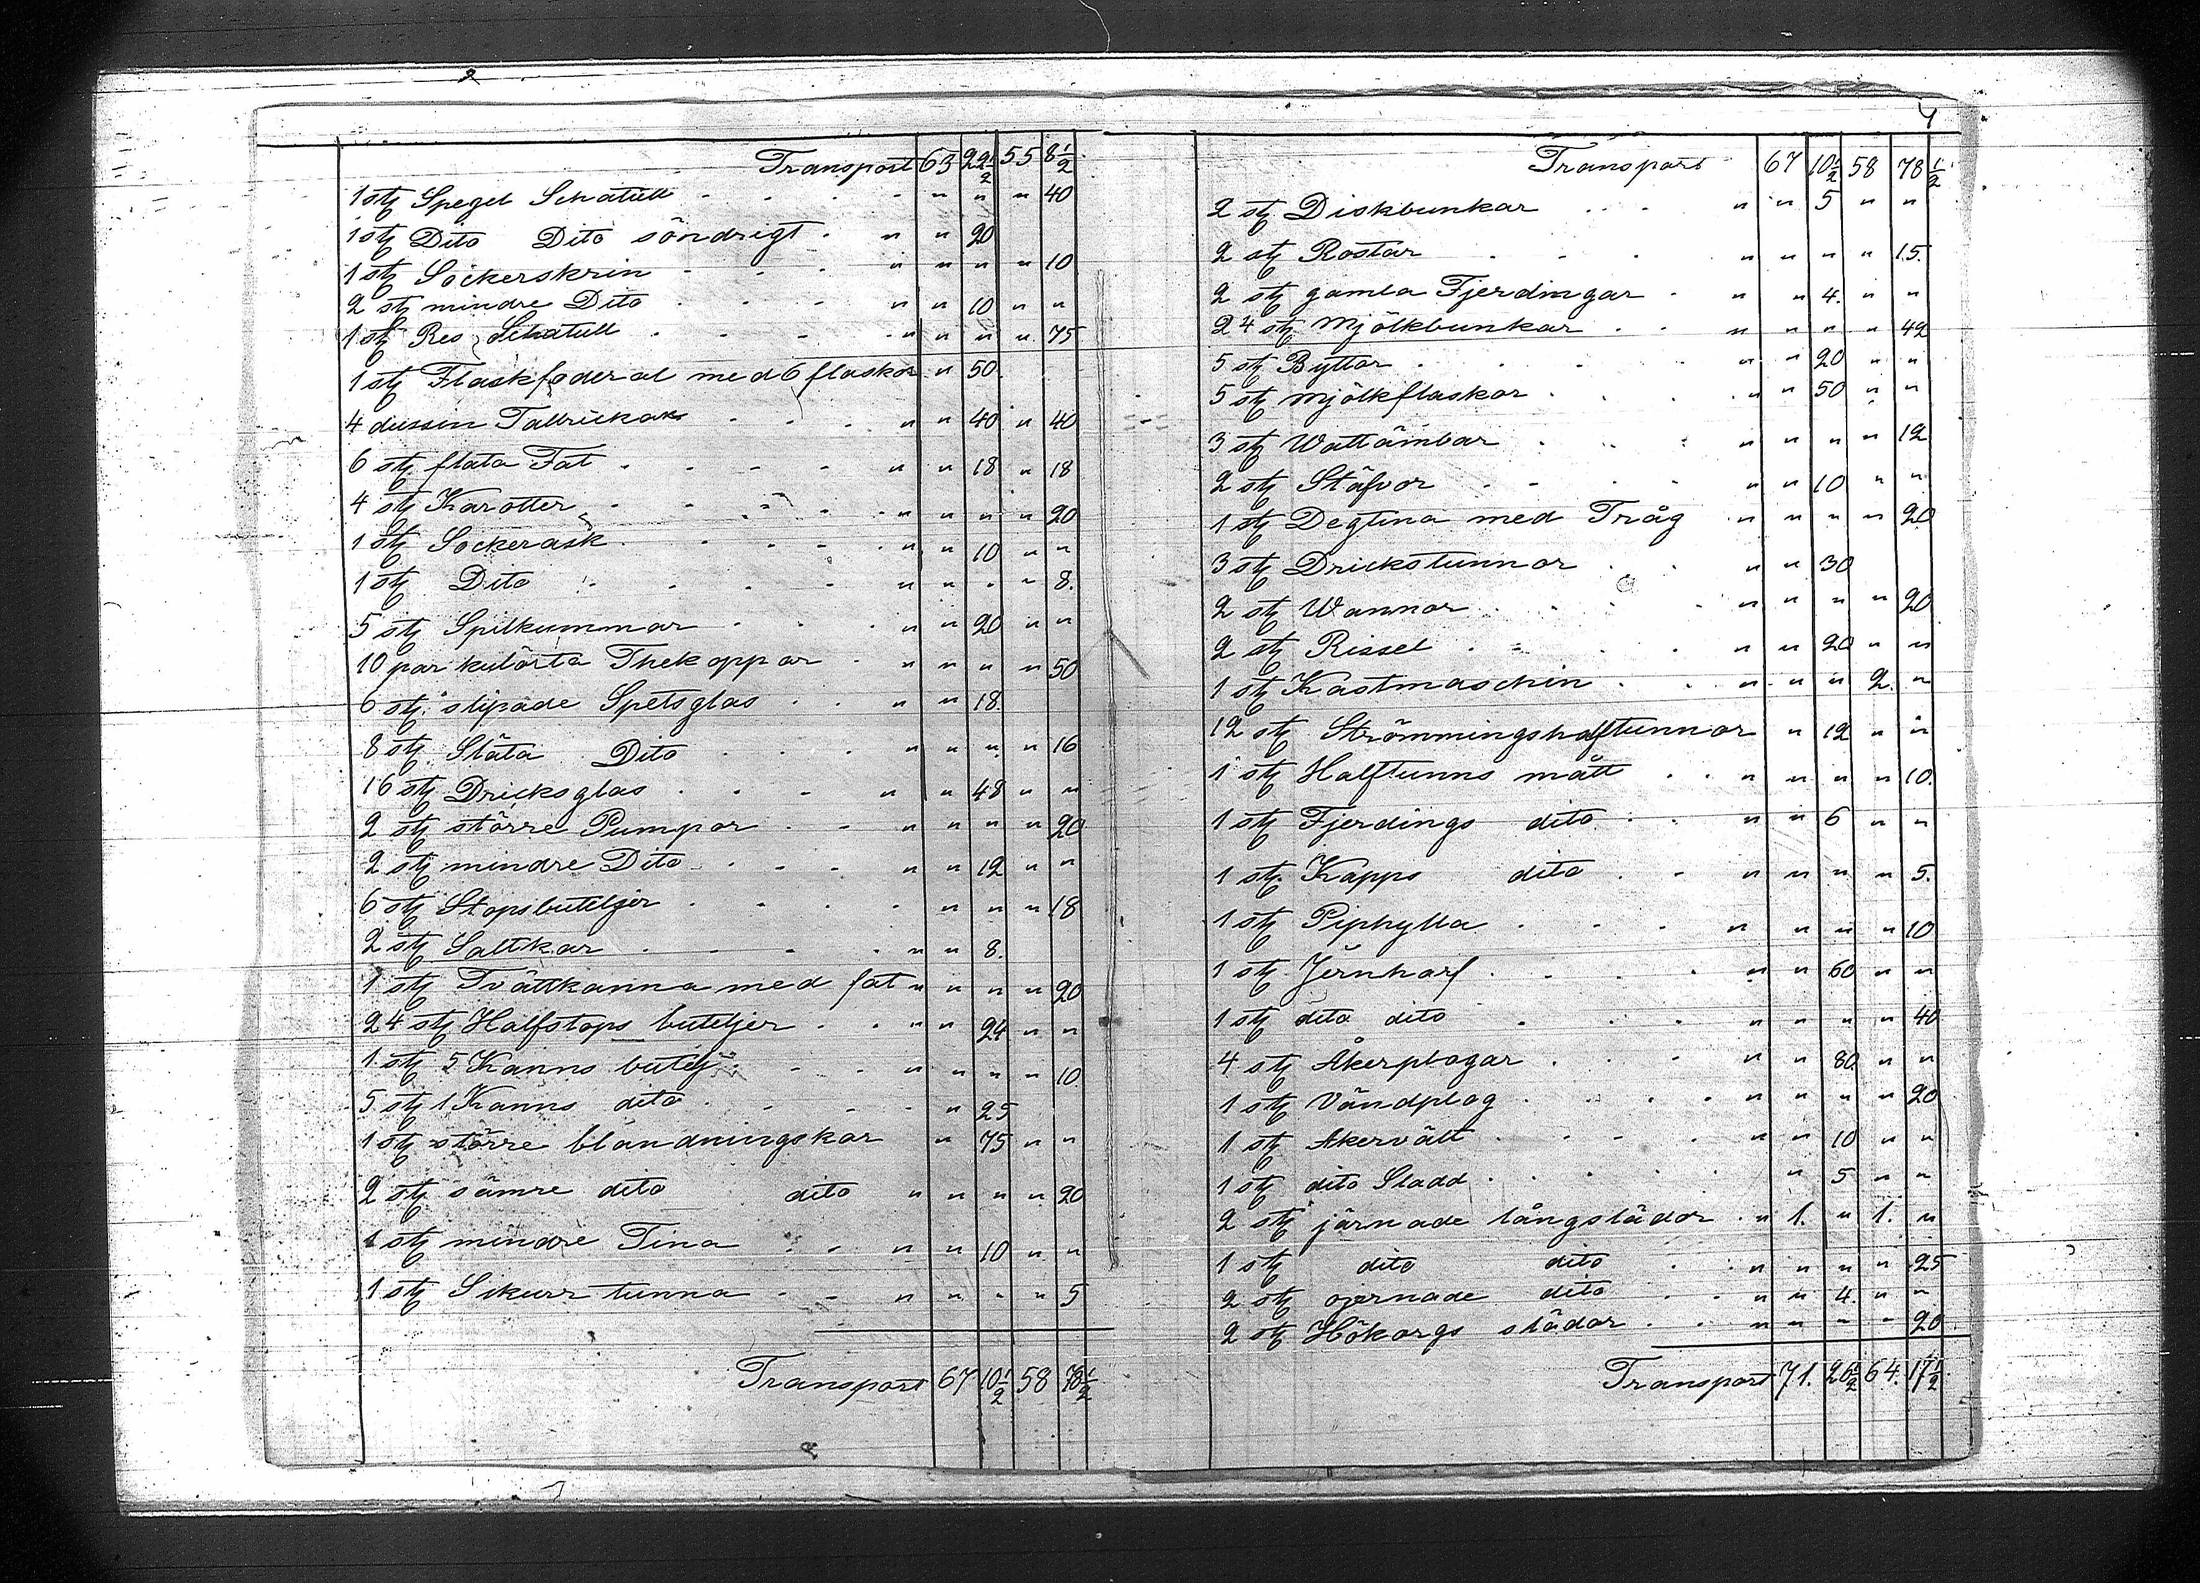 Transport 63 22 1/2 55 8 1/2
1 stÿ Spegel Schatull " " " 40
1 stÿ Dito Dito söndrigt " " 20
1 stÿ Sockerskrin " " " " 10
2 stÿ mindre Dito " " 10 " "
1 stÿ Res Schatull " " " " 75
1 stÿ Flaskfoderal med 6 flaskor " 50
4 dussin Tallrickar " " 40 " 40
6 stÿ flata Fat " " 18 " 18
4 stÿ Karotter " " " " 20
1 stÿ Sockerask " " 10 " "
1 stÿ Dito " " " " 8.
5 stÿ Spilkummar " " 20 " "
10 par kulörta Thekoppar " " " " 50
6 stÿ slipade Spetsglas " " 18.
8 stÿ Släta Dito " " " " 16
16 stÿ Dricksglas " " 48 " "
2 stÿ större Pumpor " " " " 20
2 stÿ mindre Dito " " 12 " "
6 stÿ Stopsbuteljer " " " 18
2 stÿ Saltkar " " 8.
1 stÿ Tvättkanna med fat " " " " 20
24 stÿ Halfstops buteljer " " 24 " "
1 stÿ 5 Kanns butelj " " " " 10
5 stÿ 1 Kanns dito " 25
1 stÿ större blandningskar " 75 " "
2 stÿ sämre dito dito " " " " 20
1 stÿ mindre Tina " " 10 " "
1 stÿ Sikurr tunna " " " " 5
Transport 67 10 1/2 58 78 1/2
4
Transport 67 10 1/2 58 78 1/2
2 stÿ Diskbunkar " " 5 " "
2 stÿ Rostar " " " " 15.
2 stÿ gamla Fjerdingar " " 4. " "
24 stÿ Mjölkbunkar " " " " 42
5 stÿ Byttor " " 20 " "
5 stÿ mjölkflaskor " " 50 " "
3 stÿ Wattämbar " " " " 12
2 stÿ Stäfvor " " 10 " "
1 stÿ Degtina med Tråg " " " " 20
3 stÿ Drickstunnor " " 30
2 stÿ Wannor " " " " 20
2 stÿ Rissel " " 20 " "
1 stÿ Kastmaschin " " " 2. "
12 stÿ Strömmingshalftunnor " 12 " "
1 stÿ Halftunns mått " " " " 10.
1 stÿ Fjerdings dito " " 6 " "
1 stÿ Kapps dito " " " " 5.
1 stÿ Piphylla " " " " 10
1 stÿ Jernharf " " 60 " "
1 stÿ dito dito " " " " 40
4 stÿ Åkerplogar " " 80 " "
1 stÿ Vändplog " " " " 20
1 stÿ Akervält " " 10 " "
1 stÿ dito Sladd " 5 " "
2 stÿ järnade långslädor " 1. " 1. "
1 stÿ dito dito " " " " 25
2 stÿ ojernade dito " " 4. " "
2 stÿ Hökorgs slädor " " " " 20
Transport 71. 20 1/2 64. 17 1/2